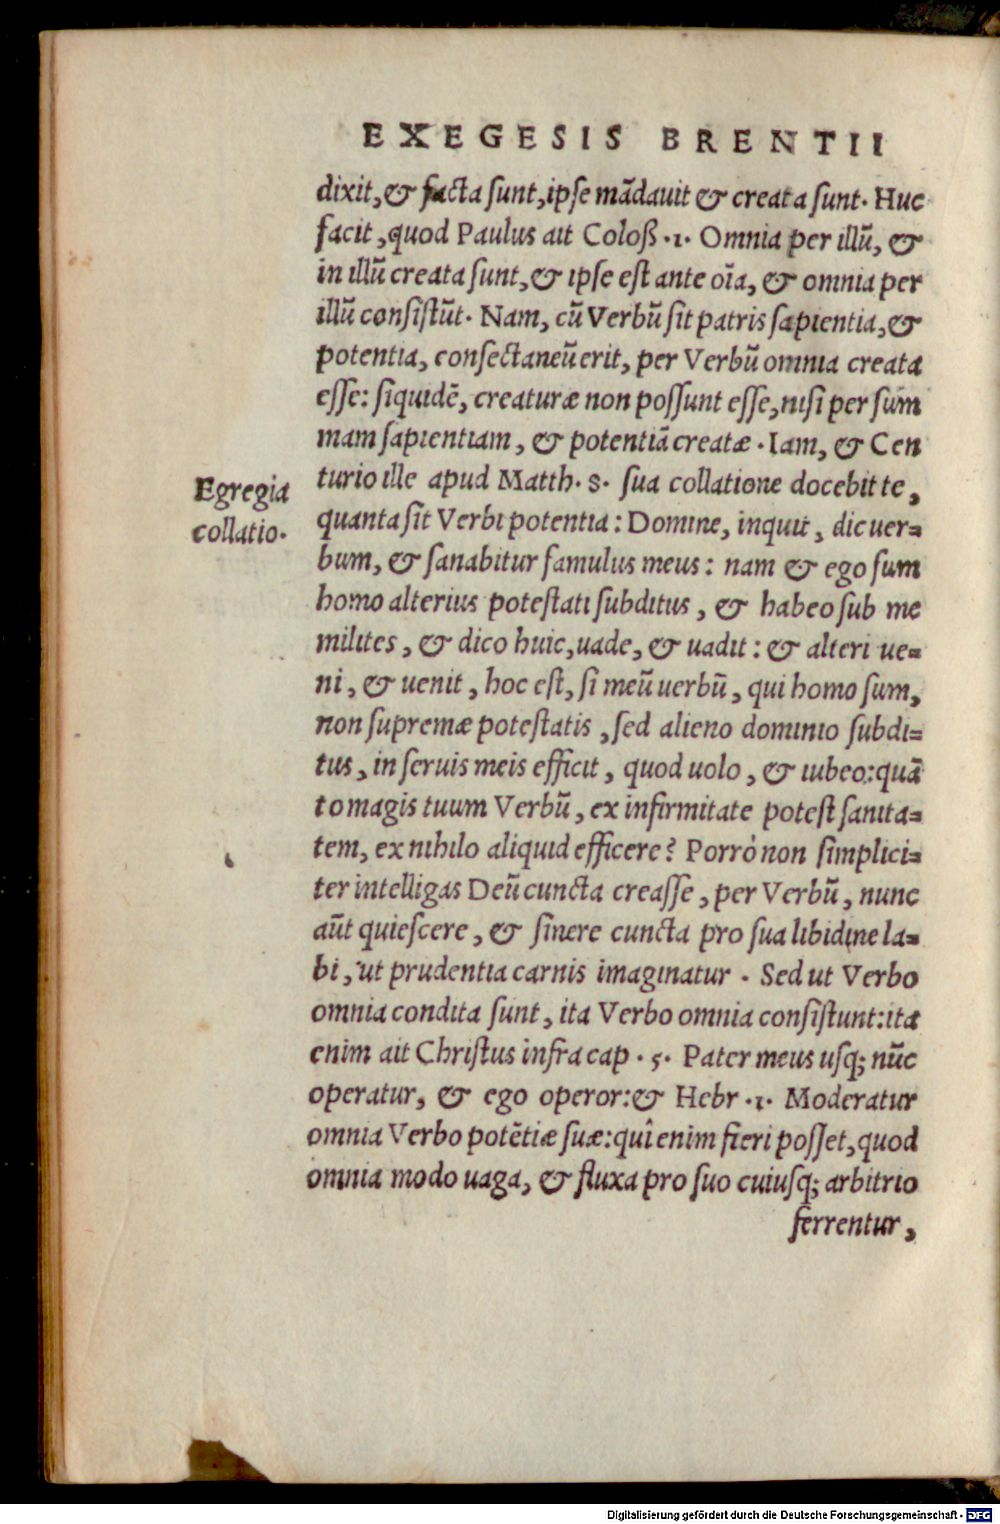 EXEGESIS BRENTII
dixit, & facta sunt, ipse mãdavit & creata sunt. Huc
facit, quod Paulus ait Coloß.1. Omnia per illũ, &
in illũ creata sunt, & ipse est ante oĩa, & omnia per
illũ consistũt. Nam, cũ Verbũ sit patris sapientia, &
potentia, consectaneũ erit, per Verbũ omnia creata
esse: siquidẽ, creaturæ non possunt esse, nisi per sum
mam sapientiam, & potentiã creatæ. Iam, & Cen
turio ille apud Matth. 8. sua collatione docebit te,
Egregia
collatio.
quanta sit Verbi potentia: Domine, inquit, dic uer=
bum, & sanabitur famulus meus: nam & ego sum
homo alterius potestati subditus, & habeo sub me
milites, & dico huic, uade, & uadit: & alteri ue=
ni, & uenit, hoc est, si meũ uerbũ, qui homo sum,
non supremæ potestatis, sed alieno dominio subdi=
tus, in seruis meis efficit, quod uolo, & iubeo: quã
to magis tuum Verbũ, ex infirmitate potest sanita=
tem, ex nihilo aliquid efficere? Porrò non simplici=
ter intelligas Deũ cuncta creasse, per Verbũ, nunc
aũt quiescere, & sinere cuncta pro sua libidine la=
bi, ut prudentia carnis imaginatur. Sed ut Verbo
omnia condita sunt, ita Verbo omnia consistunt: ita
enim ait Christus infra cap. 5. Pater meus usq; nũc
operatur, & ego operor: & Hebr.1. Moderatur
omnia Verbo potẽtiæ suæ: quî enim fieri posset, quod
omnia modo uaga, & fluxa pro suo cuiusq; arbitrio
ferrentur,
Digitalisierung gefördert durch die Deutsche Forschungsgemeinschaft - DFG